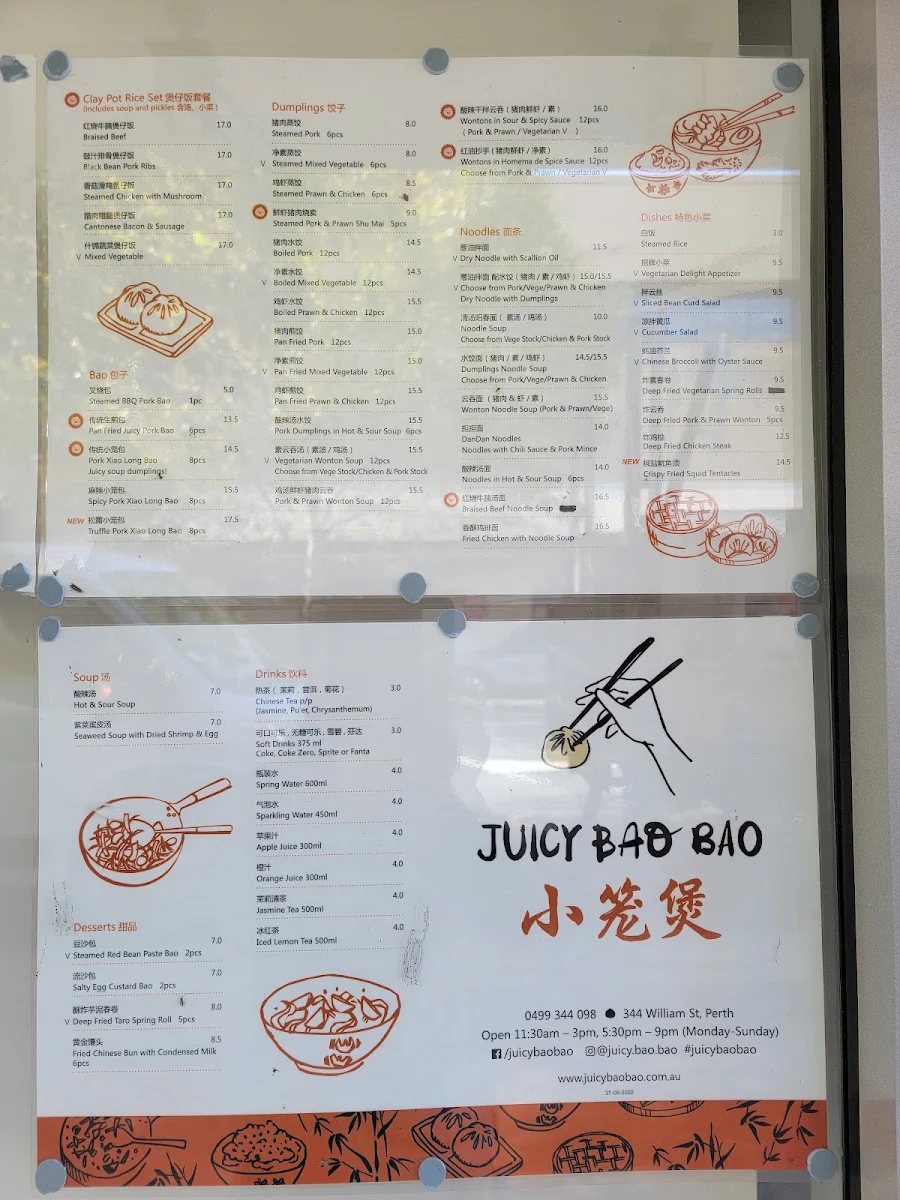 Clay Pot Rice Set 煲仔饭套餐
(Includes soup and pickles 含汤、小菜)
红烧牛腩煲仔饭 17.0
Braised Beef
豉汁排骨煲仔饭 17.0
Black Bean Pork Ribs
香菇滑鸡煲仔饭 17.0
Steamed Chicken with Mushroom
腊肉腊肠煲仔饭 17.0
Cantonese Bacon & Sausage
什锦蔬菜煲仔饭 17.0
V Mixed Vegetable
Bao 包子
叉烧包 5.0
Steamed BBQ Pork Bao 1pc
传统生煎包 13.5
Pan Fried Juicy Pork Bao 6pcs
传统小笼包 14.5
Pork Xiao Long Bao 8pcs
Juicy soup dumplings!
麻辣小笼包 15.5
Spicy Pork Xiao Long Bao 8pcs
NEW 松露小笼包 17.5
Truffle Pork Xiao Long Bao 8pcs
Dumplings 饺子
猪肉蒸饺 8.0
Steamed Pork 6pcs
净素蒸饺 8.0
V Steamed Mixed Vegetable 6pcs
鸡虾蒸饺 8.5
Steamed Prawn & Chicken 6pcs
鲜虾猪肉烧卖 9.0
Steamed Pork & Prawn Shu Mai 5pcs
猪肉水饺 14.5
Boiled Pork 12pcs
净素水饺 14.5
V Boiled Mixed Vegetable 12pcs
鸡虾水饺 15.5
Boiled Prawn & Chicken 12pcs
猪肉煎饺 15.0
Pan Fried Pork 12pcs
净素煎饺 15.0
V Pan Fried Mixed Vegetable 12pcs
鸡虾煎饺 15.5
Pan Fried Prawn & Chicken 12pcs
酸辣汤水饺 15.5
Pork Dumplings in Hot & Sour Soup 6pcs
素云吞汤（素汤 / 鸡汤） 15.5
V Vegetarian Wonton Soup 12pcs
Choose from Vege Stock/Chicken & Pork Stock
鸡汤鲜虾猪肉云吞 15.5
Pork & Prawn Wonton Soup 12pcs
酸辣干拌云吞（猪肉鲜虾 / 素） 16.0
Wontons in Sour & Spicy Sauce 12pcs
( Pork & Prawn / Vegetarian V )
红油抄手（猪肉鲜虾 / 净素） 16.0
Wontons in Homema de Spice Sauce 12pcs
Choose from Pork & Prawn / Vegetarian V
Noodles 面条
葱油拌面 11.5
V Dry Noodle with Scallion Oil
葱油拌面 配水饺（猪肉 / 素 / 鸡虾） 15.0/15.5
V Choose from Pork/Vege/Prawn & Chicken
Dry Noodle with Dumplings
清汤阳春面（ 素汤 / 鸡汤） 10.0
Noodle Soup
Choose from Vege Stock/Chicken & Pork Stock
水饺面（猪肉 / 素 / 鸡虾） 14.5/15.5
Dumplings Noodle Soup
Choose from Pork/Vege/Prawn & Chicken
云吞面（猪肉 & 虾 / 素） 15.5
Wonton Noodle Soup (Pork & Prawn/Vege)
担担面 14.0
DanDan Noodles
Noodles with Chili Sauce & Pork Mince
酸辣汤面 14.0
Noodles in Hot & Sour Soup 6pcs
红烧牛腩汤面 16.5
Braised Beef Noodle Soup
香酥鸡排面 16.5
Fried Chicken with Noodle Soup
Dishes 特色小菜
白饭 3.0
Steamed Rice
招牌小菜 9.5
V Vegetarian Delight Appetizer
拌云丝 9.5
V Sliced Bean Curd Salad
凉拌黄瓜 9.5
V Cucumber Salad
蚝油芥兰 9.5
V Chinese Broccoli with Oyster Sauce
炸素春卷 9.5
Deep Fried Vegetarian Spring Rolls
炸云吞 9.5
Deep Fried Pork & Prawn Wonton 5pcs
炸鸡排 12.5
Deep Fried Chicken Steak
NEW 椒盐鱿鱼须 14.5
Crispy Fried Squid Tentacles
Soup 汤
酸辣汤 7.0
Hot & Sour Soup
紫菜蛋皮汤 7.0
Seaweed Soup with Dried Shrimp & Egg
Desserts 甜品
豆沙包 7.0
V Steamed Red Bean Paste Bao 2pcs
流沙包 7.0
Salty Egg Custard Bao 2pcs
酥炸芋泥春卷 8.0
V Deep Fried Taro Spring Roll 5pcs
黄金馒头 8.5
Fried Chinese Bun with Condensed Milk
6pcs
Drinks 饮料
热茶（ 茉莉 , 普洱 , 菊花 ） 3.0
Chinese Tea p/p
(Jasmine, Pu'er, Chrysanthemum)
可口可乐 , 无糖可乐 , 雪碧 , 芬达 3.0
Soft Drinks 375 ml
Coke, Coke Zero, Sprite or Fanta
瓶装水 4.0
Spring Water 600ml
气泡水 4.0
Sparkling Water 450ml
苹果汁 4.0
Apple Juice 300ml
橙汁 4.0
Orange Juice 300ml
茉莉清茶 4.0
Jasmine Tea 500ml
冰红茶 4.0
Iced Lemon Tea 500ml
JUICY BAO BAO
小笼煲
0499 344 098 344 William St, Perth
Open 11:30am – 3pm, 5:30pm – 9pm (Monday-Sunday)
/juicybaobao @juicy.bao.bao #juicybaobao
www.juicybaobao.com.au
31-08-2022